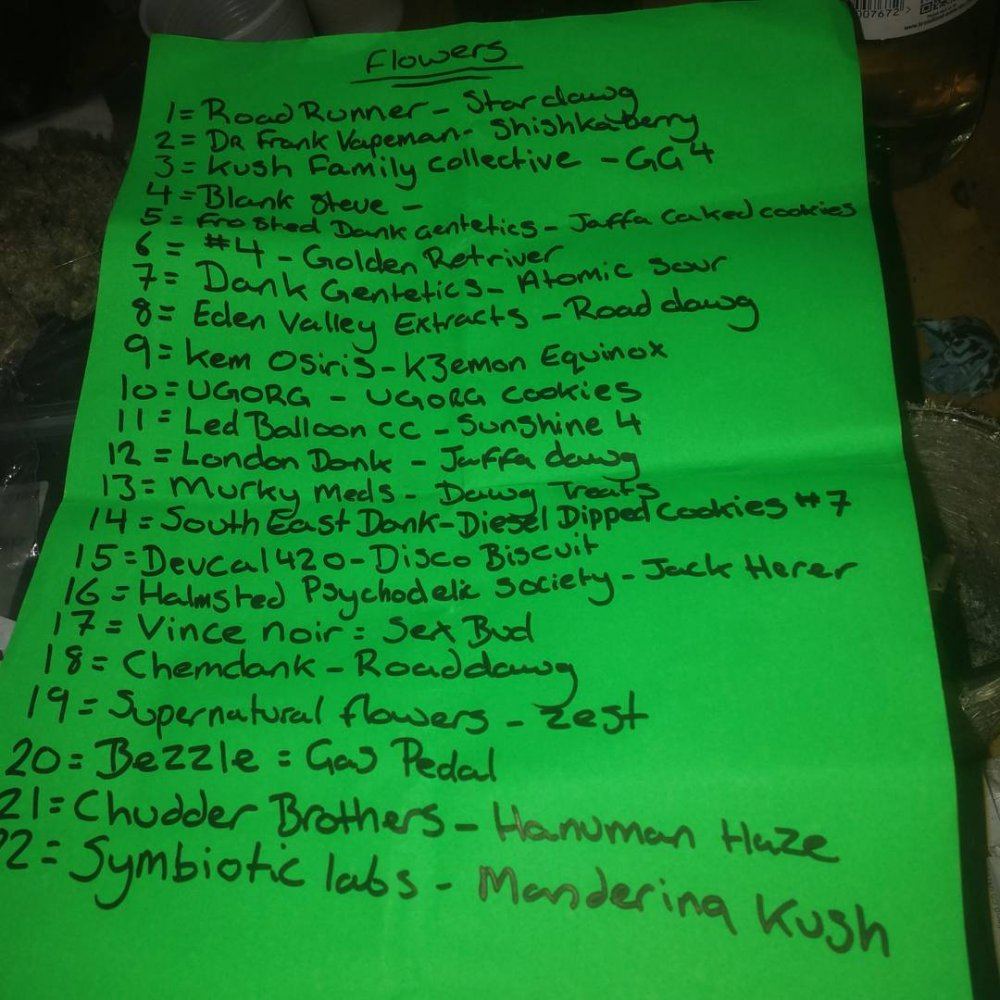 007672
Flowers
1 = Road Runner - Stardawg
2 = DR Frank Vapeman - Shishkaberry
3 = Kush Family collective - GG4
4 = Blank Steve -
5 = Frosted Dank Gentetics - Jaffa Caked cookies
6 = #4 - Golden Retriver
7 = Dank Gentetics - Atomic Sour
8 = Eden Valley Extracts - Road dawg
9 = Kem Osiris - K3emon Equinox
10 = UGORG - UGORG Cookies
11 = Led Balloon cc - Sunshine 4
12 = London Dank - Jaffa dawg
13 = Murky Meds - Dawg Treats
14 = South East Dank - Diesel Dipped Cookies #7
15 = Deucal420 - Disco Biscuit
16 = Halmsted Psychodelic Society - Jack Herer
17 = Vince noir = Sex Bud
18 = Chemdank - Roaddawg
19 = Supernatural flowers - Zest
20 = Bezzle = Gas Pedal
21 = Chudder Brothers - Hanuman Haze
22 = Symbiotic labs - Manderina Kush